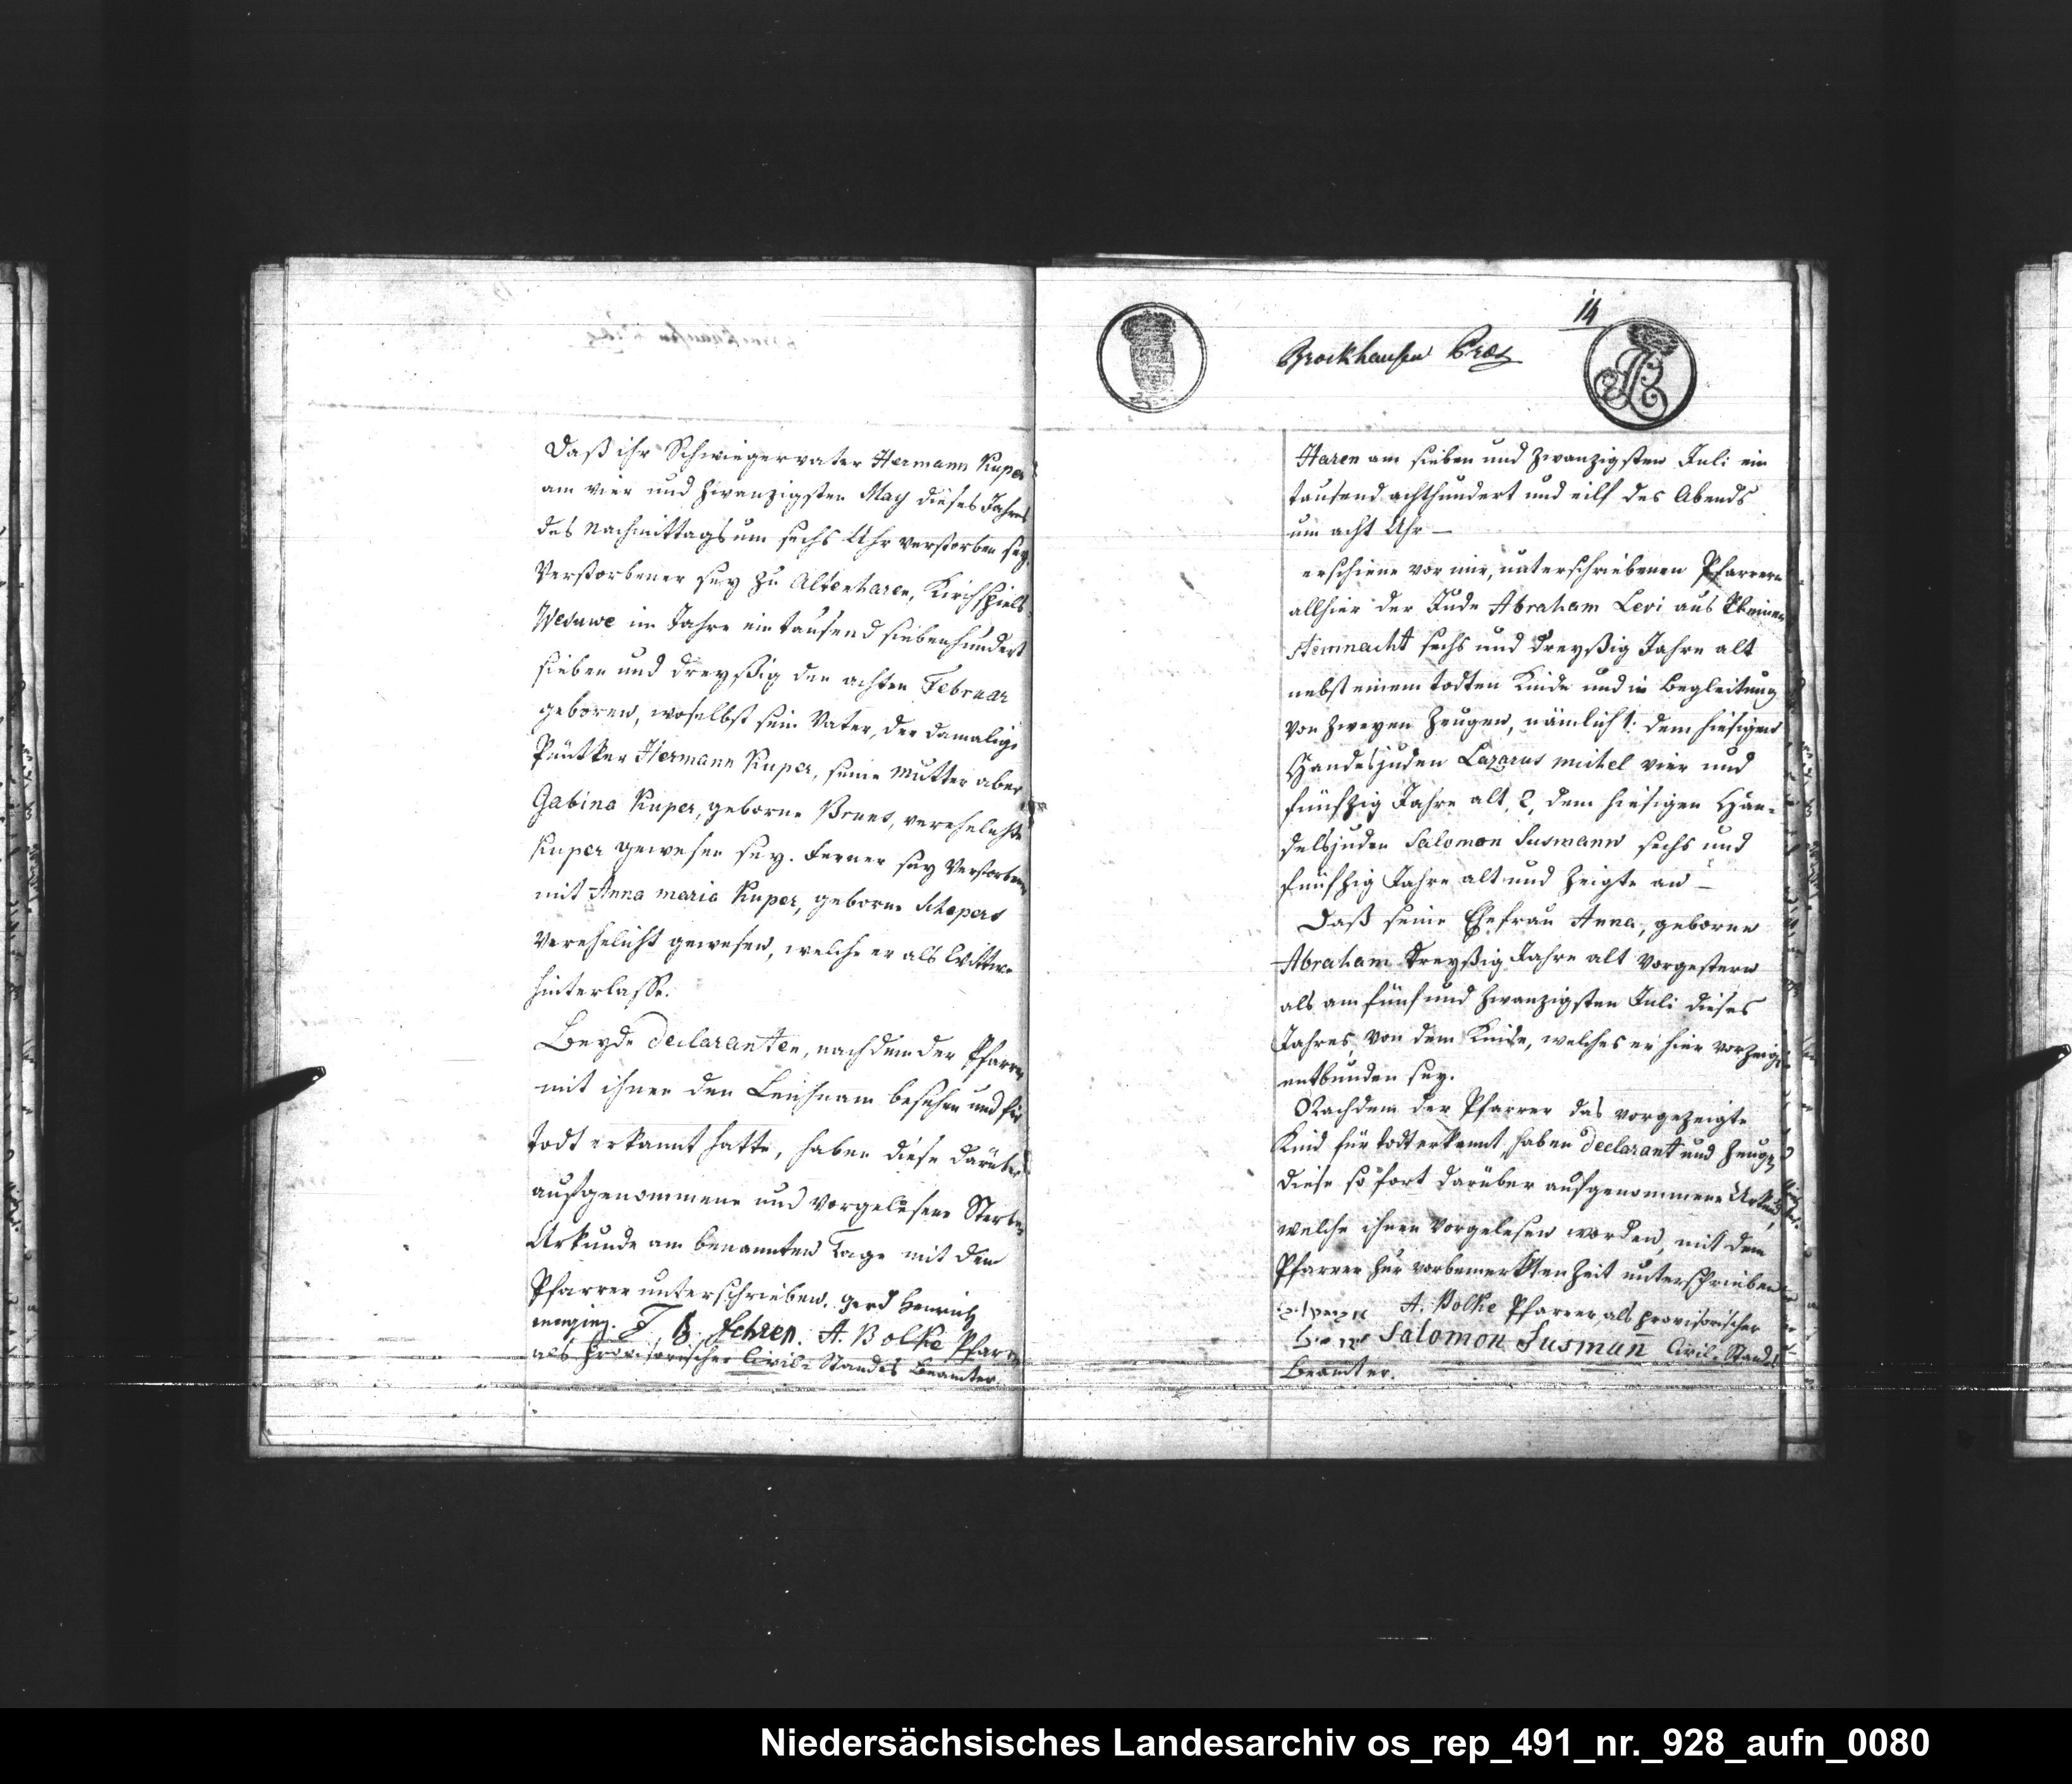 Daß ihr Schwiegervater Hermann Kuper
am vier und zwanzigsten May dieses Jahres
des Nachmittags um sechs Uhr verstorben sey.
Verstorbener sey zu Altenharen, Kirchspiels
Wesuwe im Jahre ein tausend siebenhundert
sieben und dreyßig den achten Februar
geboren, woselbst sein Vater, der damalige
Hermann Kuper, seine Mutter aber
Gabina Kuper, geborne verehelichte
Kuper gewesen sey. Ferner sey Verstorbener
mit Anna Maria Kuper, geborne Schepers
verehelicht gewesen, welche er als Wittwe
hinterlasse.
Beyde declaranten, nachdem der Pfarrer
mit ihnen den Leichnam besehen und für
todt erkannt hatte, haben diese darüber
aufgenommene und vorgelesene Sterbe
Urkunde am benannten Tage mit dem
Pfarrer unterschrieben. Gerd Henrich
T. B. Fehren. A. Bolke Pfarrer
als provisorischer Civil-Standes Beamter.
14
Brockhausen
Haren am sieben und zwanzigsten Juli ein
tausend achthundert und eilf des Abends
um acht Uhr —
erschiene vor mir, unterschriebenen Pfarrern
allhier der Jude Abraham Levi aus
sechs und dreyßig Jahre alt
nebst einem todten Kinde und in Begleitung
von zweyen Zeugen, nämlich 1. dem hiesigen
Handelsjuden Lazarus Michel vier und
fünfzig Jahre alt, 2, dem hiesigen Han-
delsjuden Salomon Susmann sechs und
fünfzig Jahre alt und zeigte an —
Daß seine Ehefrau Anna, geborne
Abraham dreyßig Jahre alt vorgestern
als am fünf und zwanzigsten Juli dieses
Jahres, von dem Kinde, welches er hier vorzeige
entbunden sey.
Nachdem der Pfarrer das vorgezeigte
Kind für todt erkannt, haben declarant und Zeugen
diese so fort darüber aufgenommene Urkunde,
welche ihnen vorgelesen worden, mit dem
Pfarrer zur vorbemerkten Zeit unterschrieben
A. Bolke Pfarrer als provisorischer
Salomon Susmañ Civil-Standes
Beamter.
Niedersächsisches Landesarchiv os_rep_491_nr._928_aufn_0080